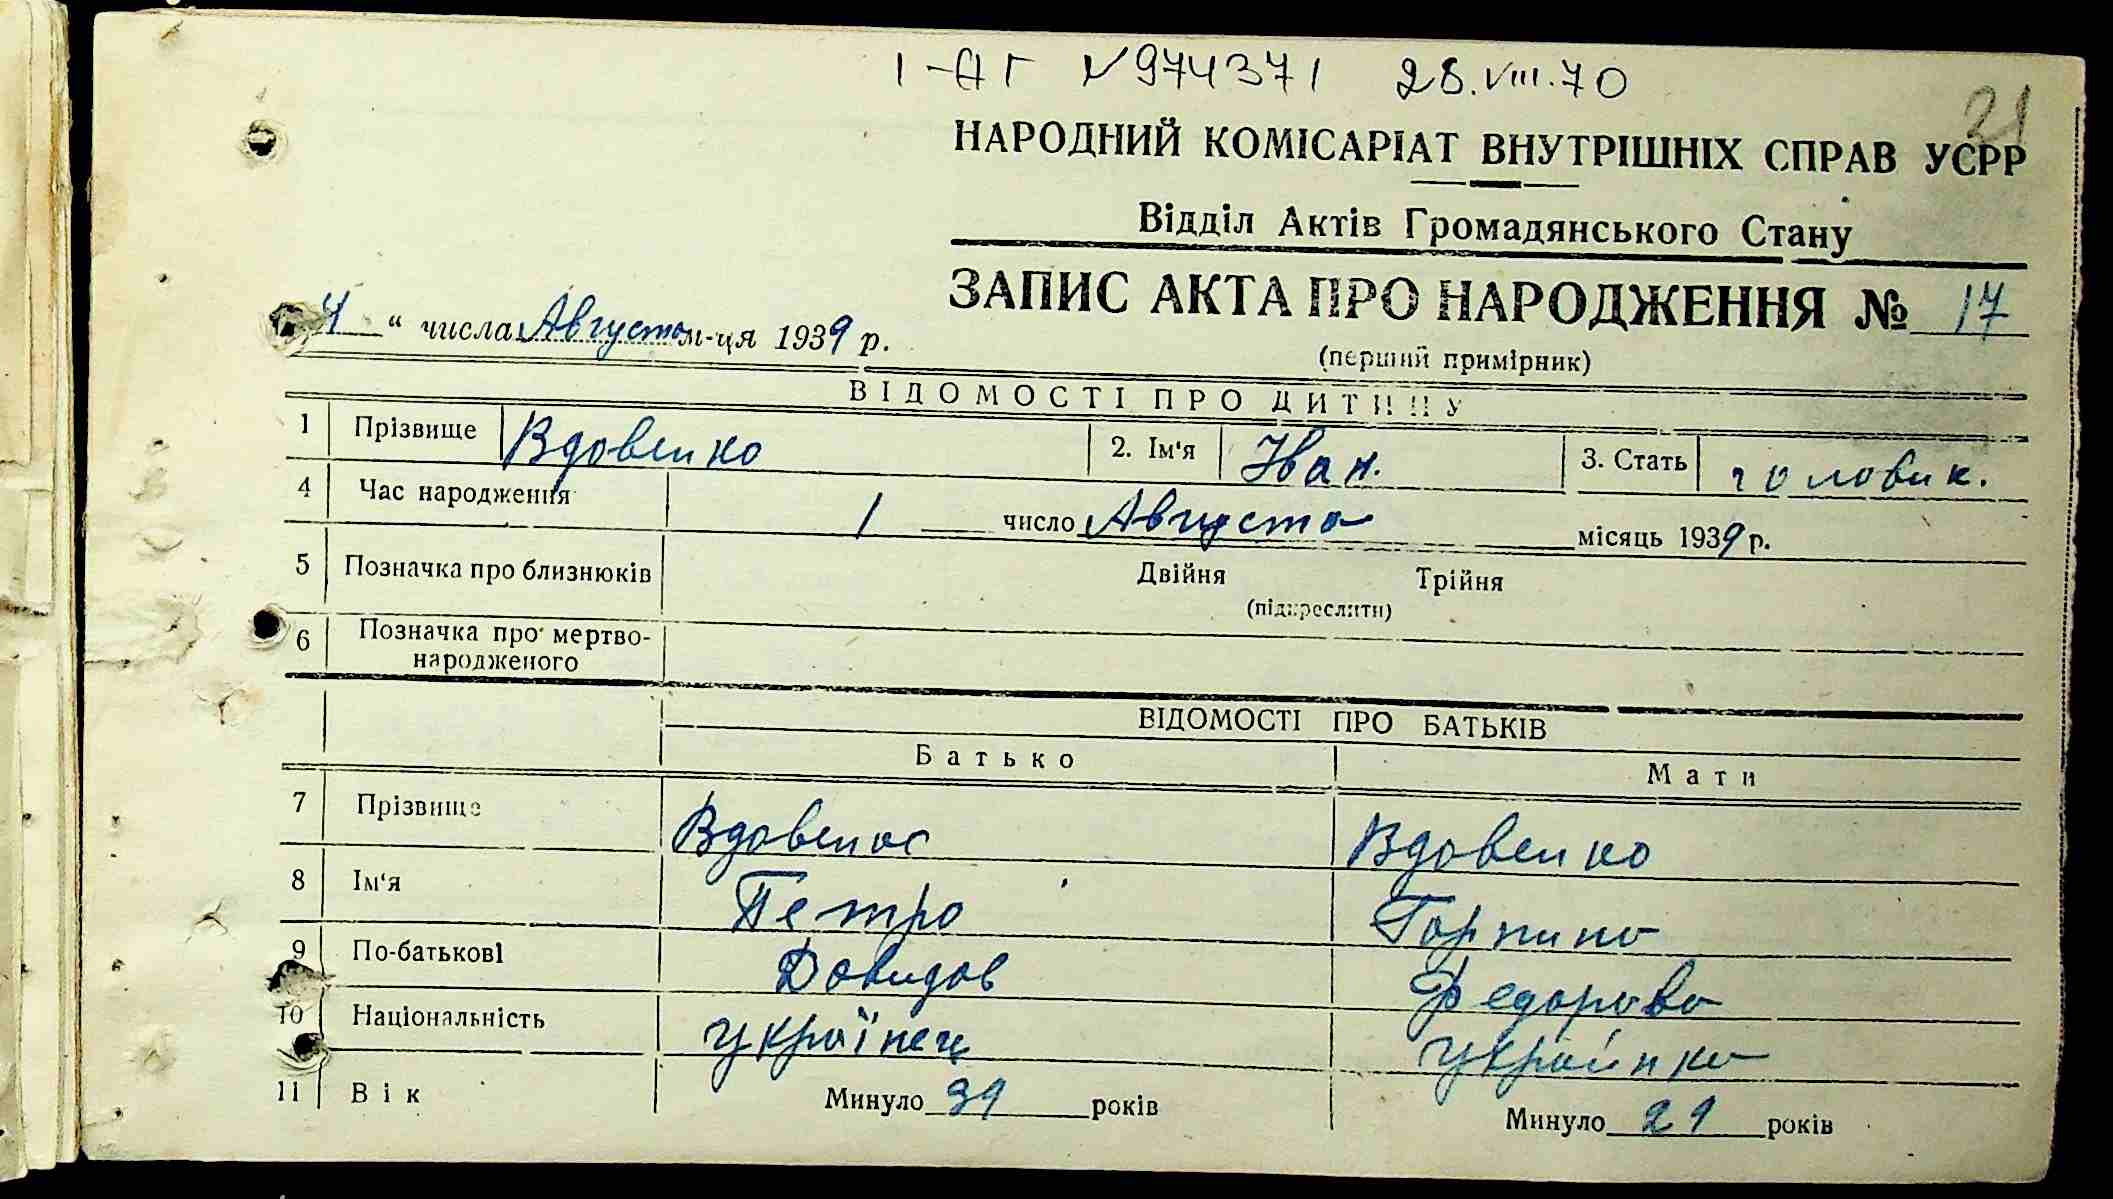 I-АГ N 974371 28.VIII.70
21
НАРОДНИЙ КОМІСАРІАТ ВНУТРІШНІХ СПРАВ УСРР
Відділ Актів Громадянського Стану
ЗАПИС АКТА ПРО НАРОДЖЕННЯ № 17
4 “ числа Августа м-ця 1939 р.
(перший примірник)
ВІДОМОСТІ ПРО ДИТИНУ
1 Прізвище Вдовенко 2. Ім'я Іван. 3. Стать чоловік.
4 Час народження 1 число Августа місяць 1939 р.
5 Позначка про близнюків Двійня Трійня
(підкреслити)
6 Позначка про мертво-
народженого
ВІДОМОСТІ ПРО БАТЬКІВ
Батько Мати
7 Прізвище Вдовенко Вдовенко
8 Ім'я Петро Горпина
9 По-батькові Давидов Федорова
10 Національність українец українка
11 Вік Минуло 31 років Минуло 21 років